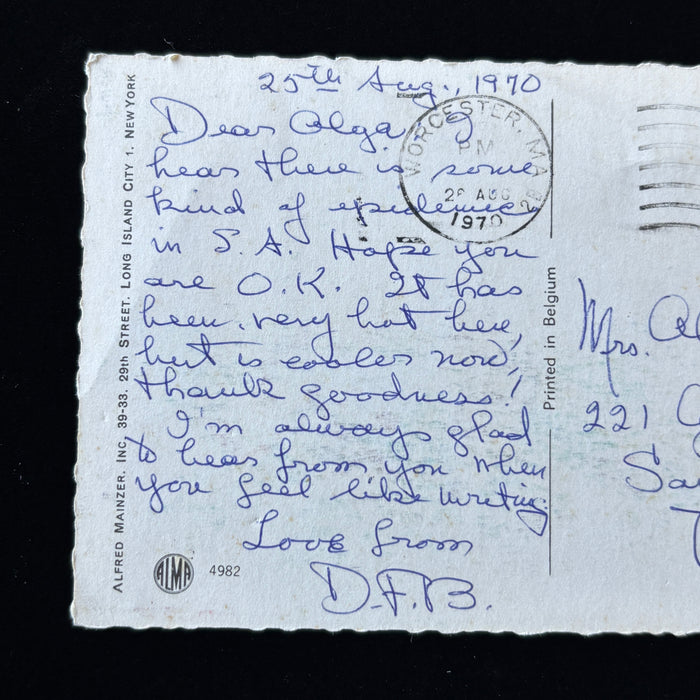 25th Aug., 1970
Dear Olga, I
hear there is some
kind of epidemic
in S.A. Hope you
are O.K. It has
been very hot here,
but is cooler now,
thank goodness!
I'm always glad
to hear from you when
you feel like writing.
Love from
D.F.B.
WORCESTER, MA
PM
1970
ALFRED MAINZER, INC, 39-33, 29th STREET. LONG ISLAND CITY 1. NEW YORK
ALMA
4982
Printed in Belgium
Mrs.
221